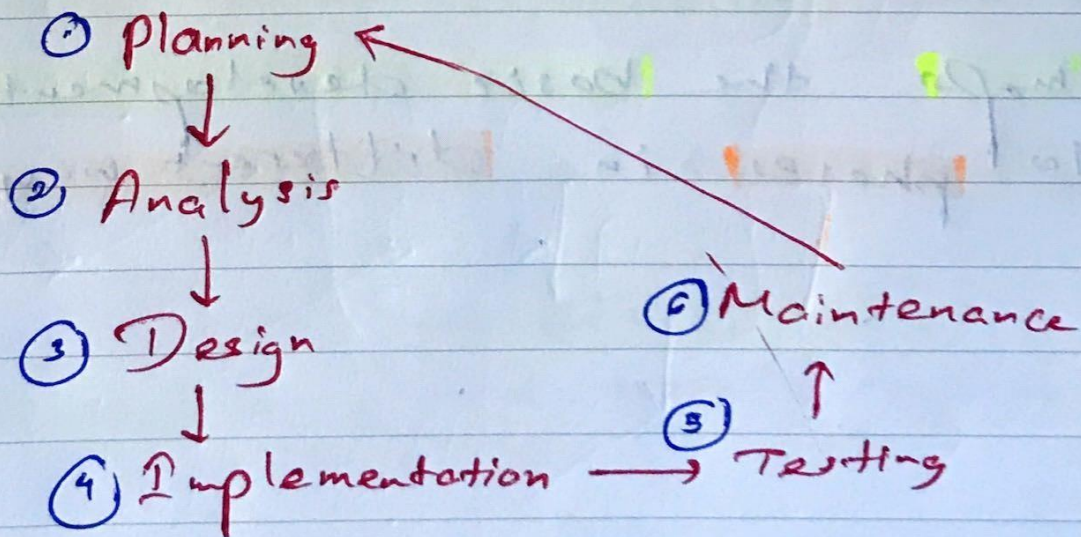 ① Planning
② Analysis
③ Design
④ Implementation
⑤ Testing
⑥ Maintenance